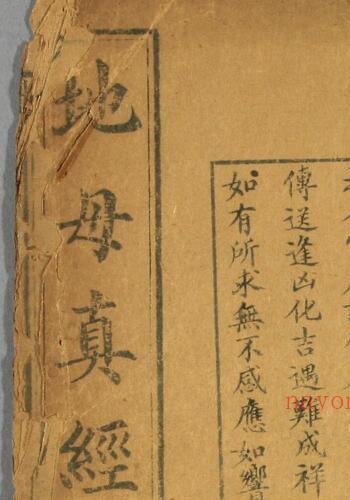 傳送逢凶化吉遇難成祥
如有所求無不感應如響
地母真經